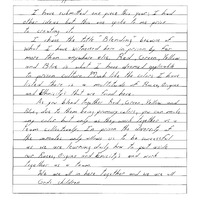 I have submitted one piece this year, I had
other ideas but this one spoke to me prior
to creating it.
I chose the title "Blending" because of
what I have witnessed here in prison by far
more than anywhere else. Red, Green, Yellow
and Blue is what I have deemed applicable
to prison culture. Much like the colors I have
listed there is a multitude of Races, Origins
and Ethnicity's that are found here.
As you blend together Red, Green, Yellow and
Blue, due to them being primary colors, you can make
any color but only as they work together as a
team collectively. In prison the diversity of
the members only allows us to be successful
as we are learning daily how to put aside
our Races, Origins and Ethnicity's and work
together as a team.
We are all in here together and we are all
God's children